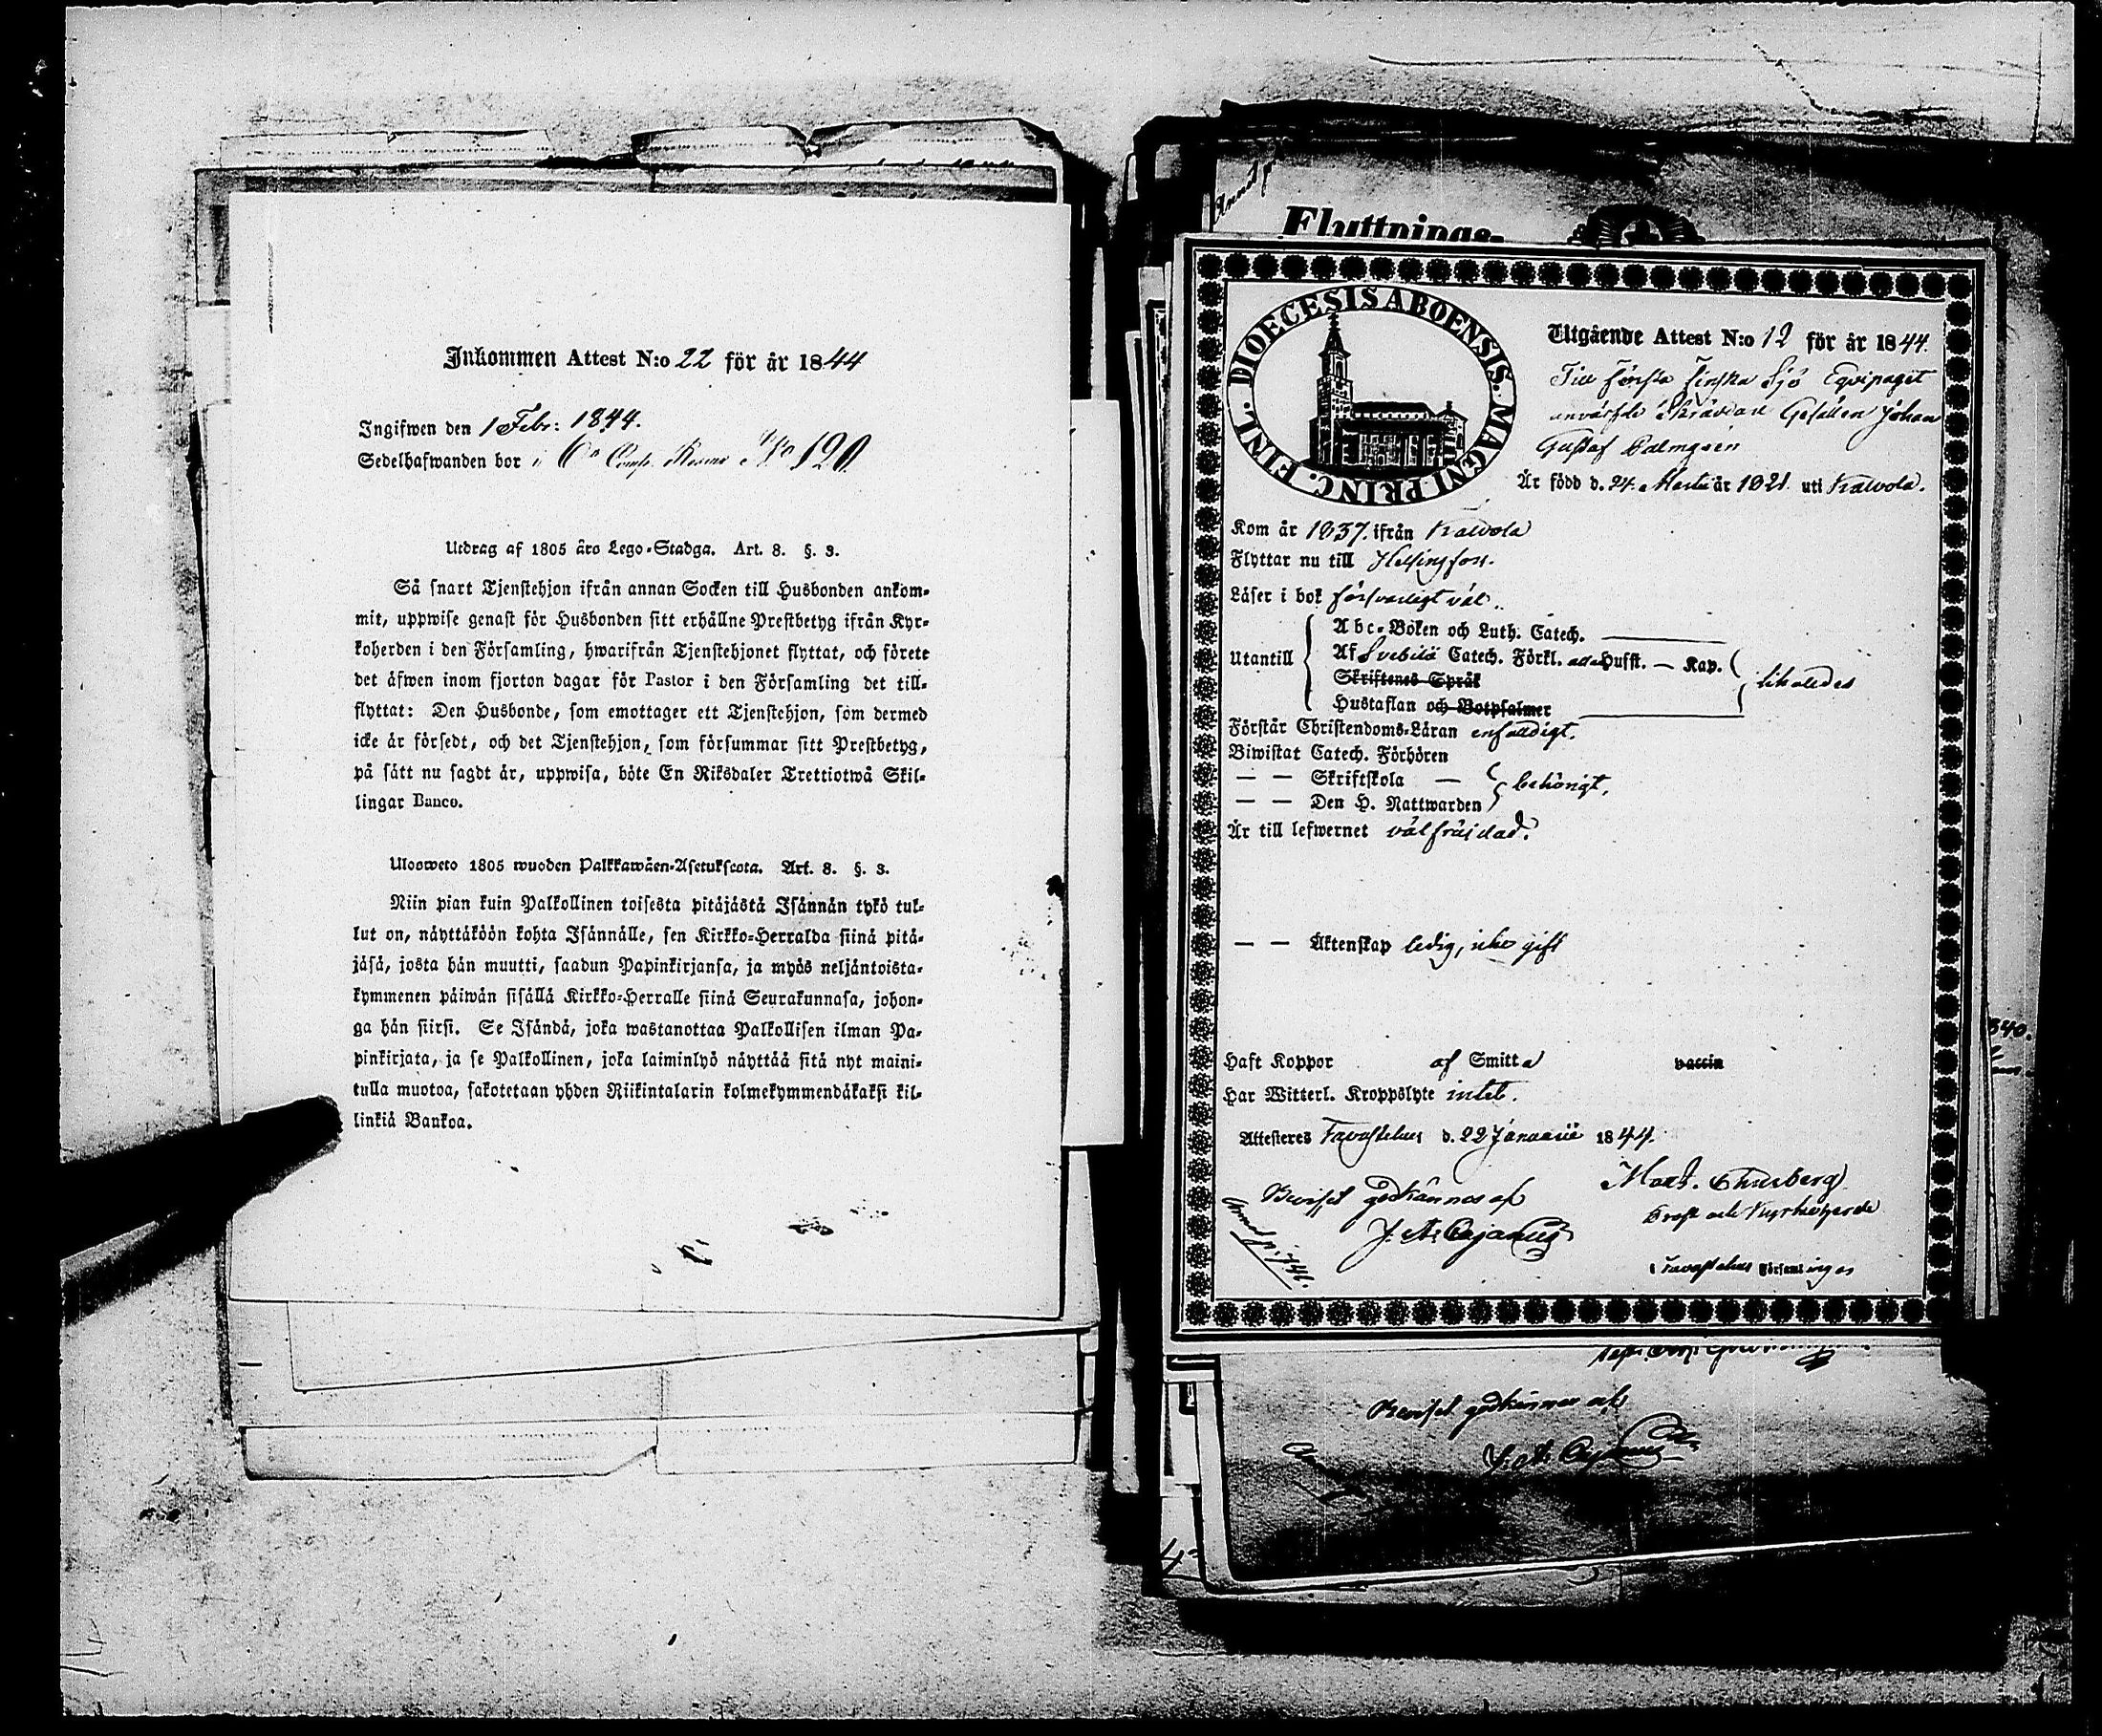 Inkommen Attest N:o 22 för år 1844
Ingifwen den 1 Febr: 1844.
Sedelhafwanden bor i 6te Comp. No 120
Utdrag af 1805 års Lego-Stadga. Art. 8. §. 3.
Så snart Tjenstehjon ifrån annan Socken till Husbonden ankom-
mit, uppwise genast för Husbonden sitt erhållne Prestbetyg ifrån Kyr-
koherden i den Församling, hwarifrån Tjenstehjonet flyttat, och förete
det äfwen inom fjorton dagar för Pastor i den Församling det till-
flyttat: Den Husbonde, som emottager ett Tjenstehjon, som dermed
icke är försedt, och det Tjenstehjon, som försummar sitt Prestbetyg,
på sätt nu sagdt är, uppwisa, böte En Riksdaler Trettiotwå Skil-
lingar Banco.
Ulosweto 1805 wuoden Palkkawäen-Asetuksesta. Art. 8. §. 3.
Niin pian kuin Palkollinen toisesta pitäjästä Isännän tykö tul-
lut on, näyttäköön kohta Isännälle, sen Kirkko-Herralda siinä pitä-
jäsä, josta hän muutti, saadun Papinkirjansa, ja myös neljäntoista-
kymmenen päiwän sisällä Kirkko-Herralle siinä Seurakunnasa, johon-
ga hän siirsi. Se Isändä, joka wastanottaa Palkollisen ilman Pa-
pinkirjata, ja se Palkollinen, joka laiminlyö näyttää sitä nyt maini-
tulla muotoa, sakotetaan yhden Riikintalarin kolmekymmendäkaksi kil-
linkiä Bankoa.
Flyttnings-
DIOECESIS ABOENSIS. MAGNI PRINC. FINL.
Utgående Attest N:o 12 för år 1844.
Till första finska Sjö Equipaget
anvärfde Skräddare Gesällen Johan
Gustaf Palmgren
Är född d. 24. Martii år 1821 uti Kalvola.
Kom år 1837. ifrån Kalvola
Flyttar nu till Helsingfors.
Läser i bok försvarligt väl.
Utantill
Abc-Boken och Luth. Catech.
Af Svebilii Catech. Förkl. Husst. — Kap.
Skriftenes Språk
Hustaflan och Botpsalmer
likaledes
Förstår Christendoms-Läran enfaldigt.
Biwistat Catech. Förhören
— — Skriftskola —
— — Den H. Nattwarden
behörigt.
Är till lefwernet välfräjdad.
— — Äktenskap ledig, icke gift
Haft Koppor af Smitta vaccin
Har Witterl. Kroppslyte intet.
Attesteres Tavastehus d. 22 Januarii 1844.
Beviset godkännes af
J. A. Cajanus
Prost och Kyrkoherde
i Tavastehus Församlingar
840.
Beviset godkännes af
J. A. Cajanus